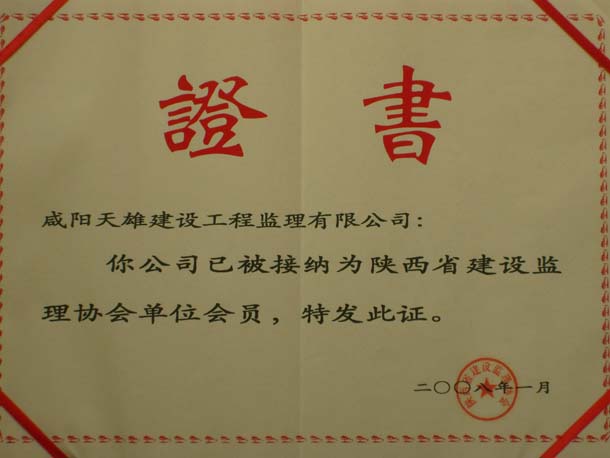 證書
咸阳天雄建设工程监理有限公司：
你公司已被接纳为陕西省建设监
理协会单位会员，特发此证。
二〇〇八年一月
陕西省建设监理协会